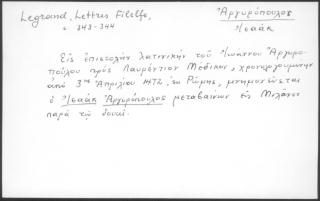 Legrand, Lettres Filelfe,
σ 343-344
Ἀργυρόπουλος
Ἰσαάκ
Εἰς ἐπιστολὴν λατινικὴν τοῦ Ἰωάννου Ἀργυρο-
πούλου πρὸς Λαυρέντιον Μέδικον, χρονολογουμένην
ἀπὸ 3ης Ἀπριλίου 1472, ἐκ Ρώμης, μνημονεύεται
ὁ Ἰσαάκ Ἀργυρόπουλος μεταβαίνων εἰς Μιλάνον
παρὰ τῷ δουκί.